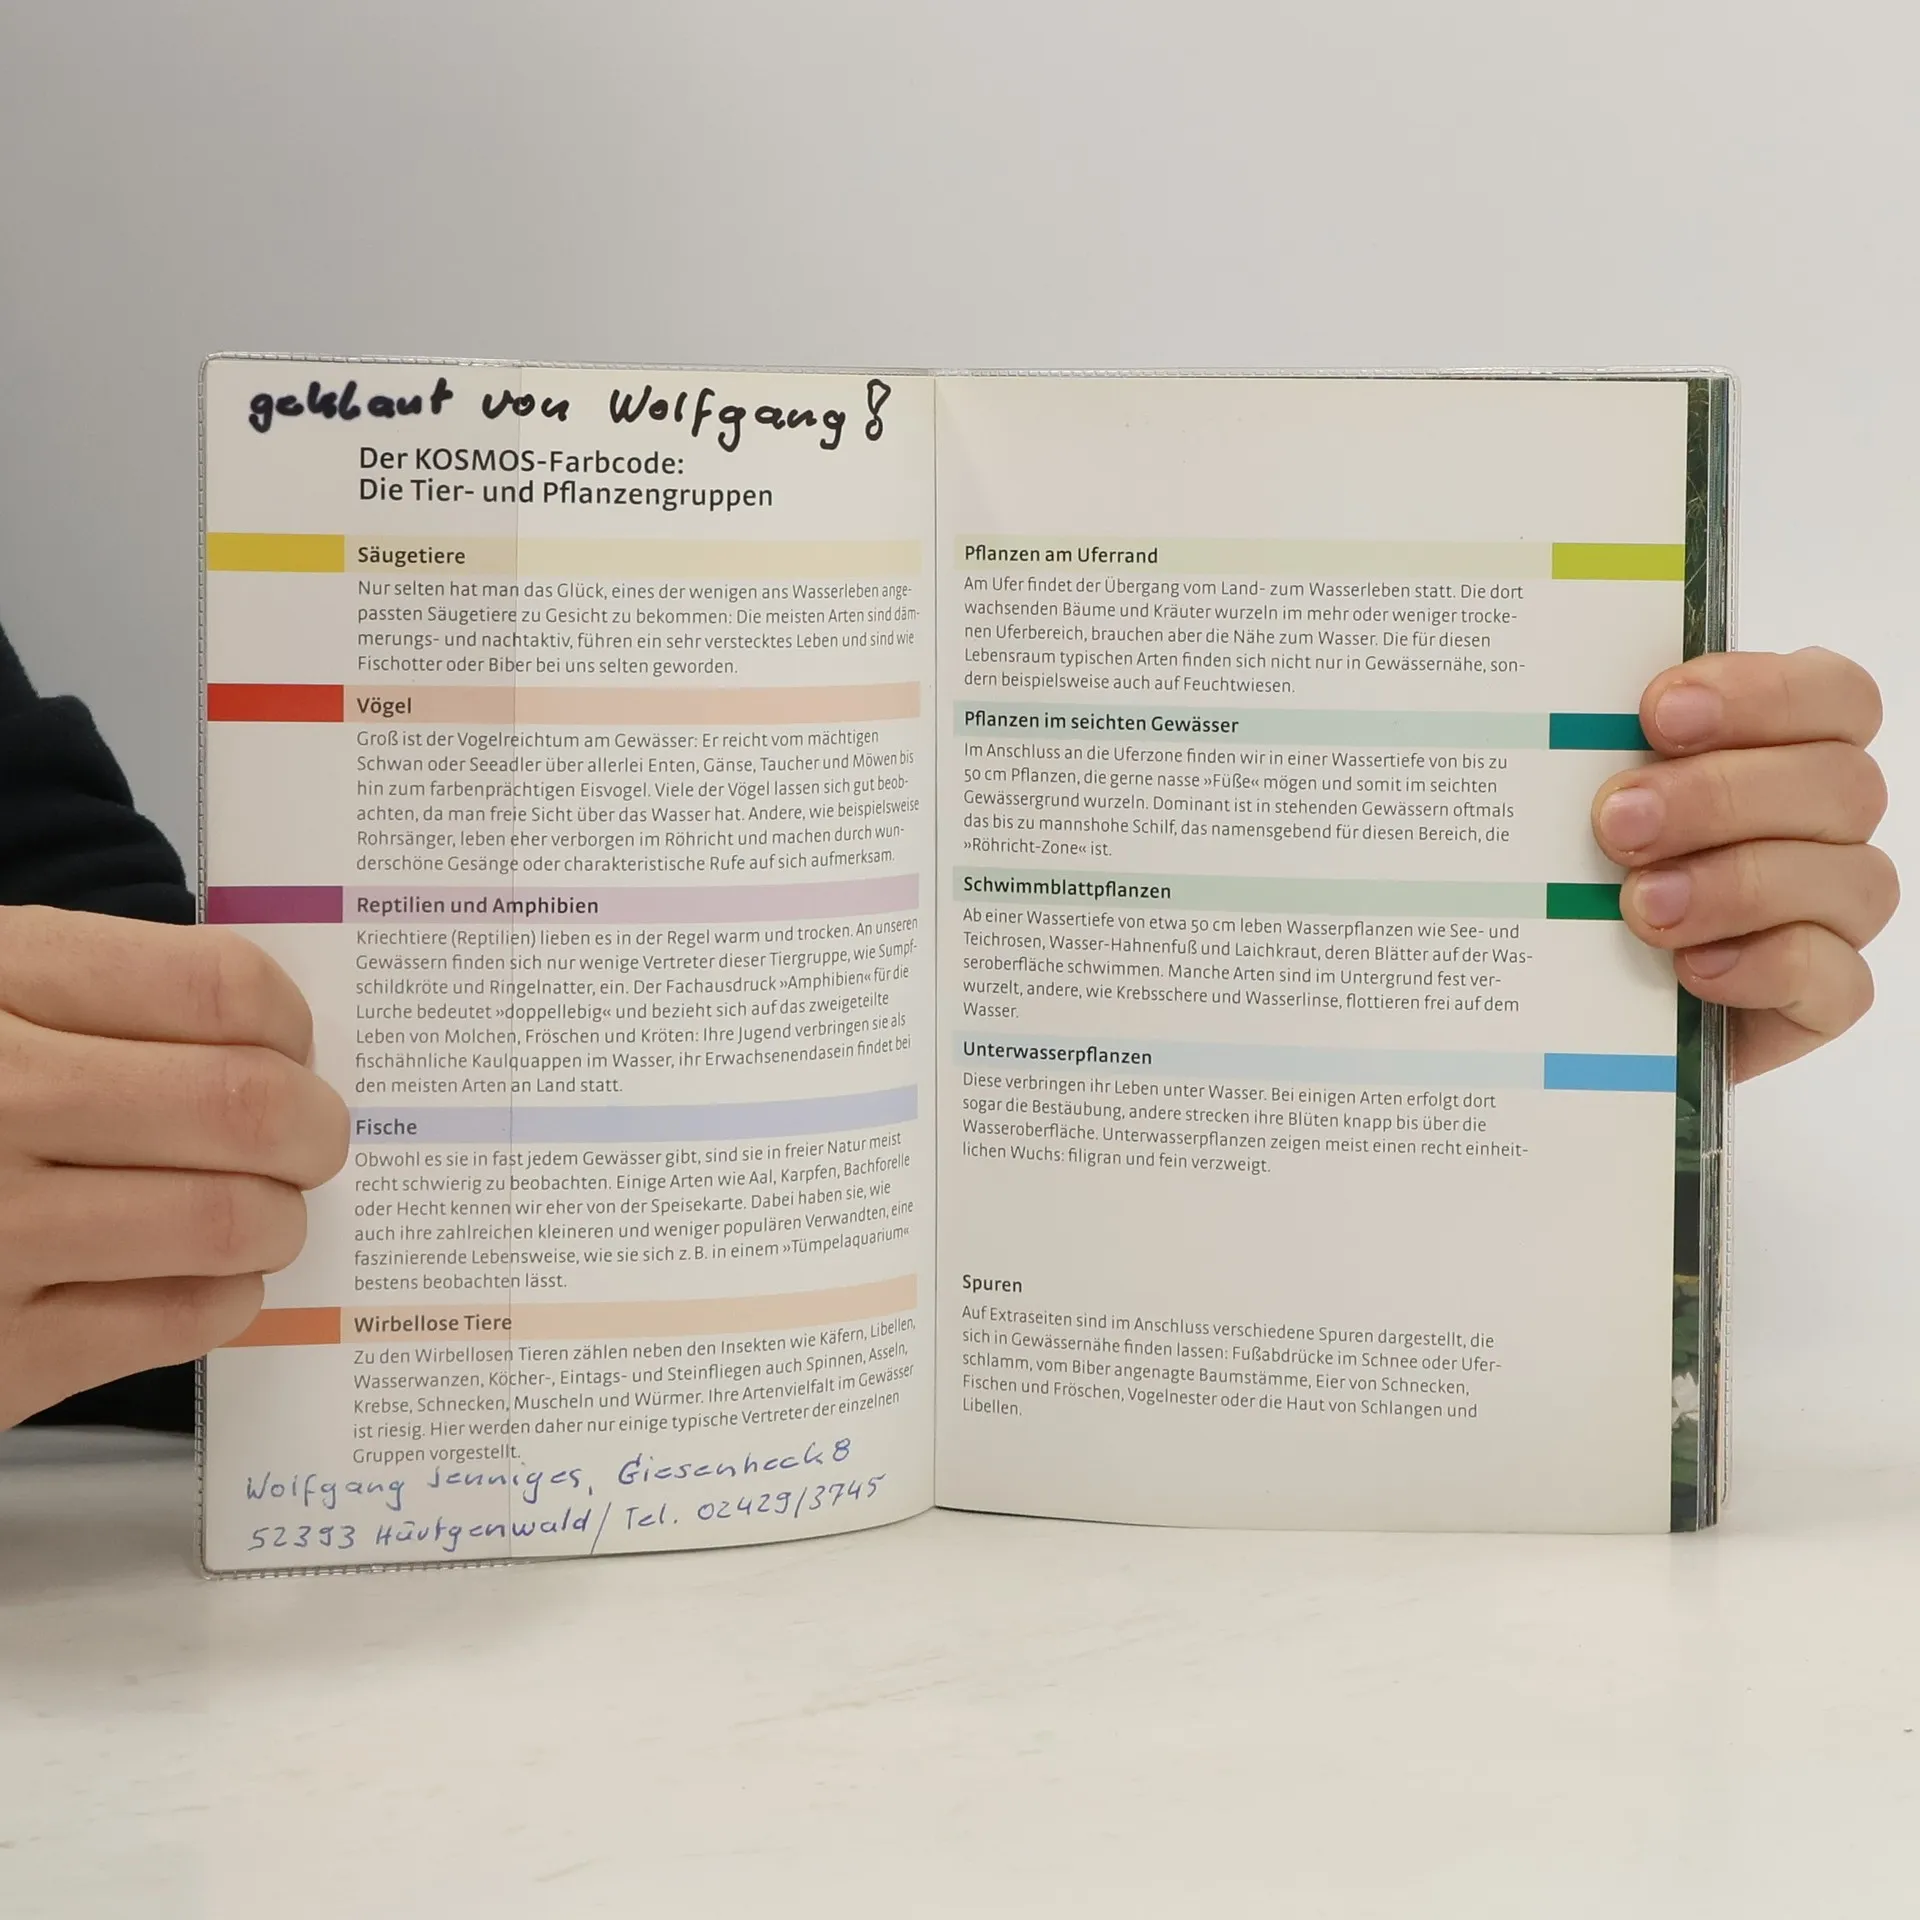 geklaut von Wolfgang!
Der KOSMOS-Farbcode:
Die Tier- und Pflanzengruppen
Säugetiere
Nur selten hat man das Glück, eines der wenigen ans Wasserleben ange-
passten Säugetiere zu Gesicht zu bekommen: Die meisten Arten sind däm-
merungs- und nachtaktiv, führen ein sehr verstecktes Leben und sind wie
Fischotter oder Biber bei uns selten geworden.
Vögel
Groß ist der Vogelreichtum am Gewässer: Er reicht vom mächtigen
Schwan oder Seeadler über allerlei Enten, Gänse, Taucher und Möwen bis
hin zum farbenprächtigen Eisvogel. Viele der Vögel lassen sich gut beob-
achten, da man freie Sicht über das Wasser hat. Andere, wie beispielsweise
Rohrsänger, leben eher verborgen im Röhricht und machen durch wun-
derschöne Gesänge oder charakteristische Rufe auf sich aufmerksam.
Reptilien und Amphibien
Kriechtiere (Reptilien) lieben es in der Regel warm und trocken. An unseren
Gewässern finden sich nur wenige Vertreter dieser Tiergruppe, wie Sumpf-
schildkröte und Ringelnatter, ein. Der Fachausdruck »Amphibien« für die
Lurche bedeutet »doppellebig« und bezieht sich auf das zweigeteilte
Leben von Molchen, Fröschen und Kröten: Ihre Jugend verbringen sie als
fischähnliche Kaulquappen im Wasser, ihr Erwachsenendasein findet bei
den meisten Arten an Land statt.
Fische
Obwohl es sie in fast jedem Gewässer gibt, sind sie in freier Natur meist
recht schwierig zu beobachten. Einige Arten wie Aal, Karpfen, Bachforelle
oder Hecht kennen wir eher von der Speisekarte. Dabei haben sie, wie
auch ihre zahlreichen kleineren und weniger populären Verwandten, eine
faszinierende Lebensweise, wie sie sich z. B. in einem »Tümpelaquarium«
bestens beobachten lässt.
Wirbellose Tiere
Zu den Wirbellosen Tieren zählen neben den Insekten wie Käfern, Libellen,
Wasserwanzen, Köcher-, Eintags- und Steinfliegen auch Spinnen, Asseln,
Krebse, Schnecken, Muscheln und Würmer. Ihre Artenvielfalt im Gewässer
ist riesig. Hier werden daher nur einige typische Vertreter der einzelnen
Gruppen vorgestellt.
Wolfgang Jenniges, Giesenheck 8
52393 Hürtgenwald / Tel. 02429/3745
Pflanzen am Uferrand
Am Ufer findet der Übergang vom Land- zum Wasserleben statt. Die dort
wachsenden Bäume und Kräuter wurzeln im mehr oder weniger trocke-
nen Uferbereich, brauchen aber die Nähe zum Wasser. Die für diesen
Lebensraum typischen Arten finden sich nicht nur in Gewässernähe, son-
dern beispielsweise auch auf Feuchtwiesen.
Pflanzen im seichten Gewässer
Im Anschluss an die Uferzone finden wir in einer Wassertiefe von bis zu
50 cm Pflanzen, die gerne nasse »Füße« mögen und somit im seichten
Gewässergrund wurzeln. Dominant ist in stehenden Gewässern oftmals
das bis zu mannshohe Schilf, das namensgebend für diesen Bereich, die
»Röhricht-Zone« ist.
Schwimmblattpflanzen
Ab einer Wassertiefe von etwa 50 cm leben Wasserpflanzen wie See- und
Teichrosen, Wasser-Hahnenfuß und Laichkraut, deren Blätter auf der Was-
seroberfläche schwimmen. Manche Arten sind im Untergrund fest ver-
wurzelt, andere, wie Krebsschere und Wasserlinse, flottieren frei auf dem
Wasser.
Unterwasserpflanzen
Diese verbringen ihr Leben unter Wasser. Bei einigen Arten erfolgt dort
sogar die Bestäubung, andere strecken ihre Blüten knapp bis über die
Wasseroberfläche. Unterwasserpflanzen zeigen meist einen recht einheit-
lichen Wuchs: filigran und fein verzweigt.
Spuren
Auf Extraseiten sind im Anschluss verschiedene Spuren dargestellt, die
sich in Gewässernähe finden lassen: Fußabdrücke im Schnee oder Ufer-
schlamm, vom Biber angenagte Baumstämme, Eier von Schnecken,
Fischen und Fröschen, Vogelnester oder die Haut von Schlangen und
Libellen.